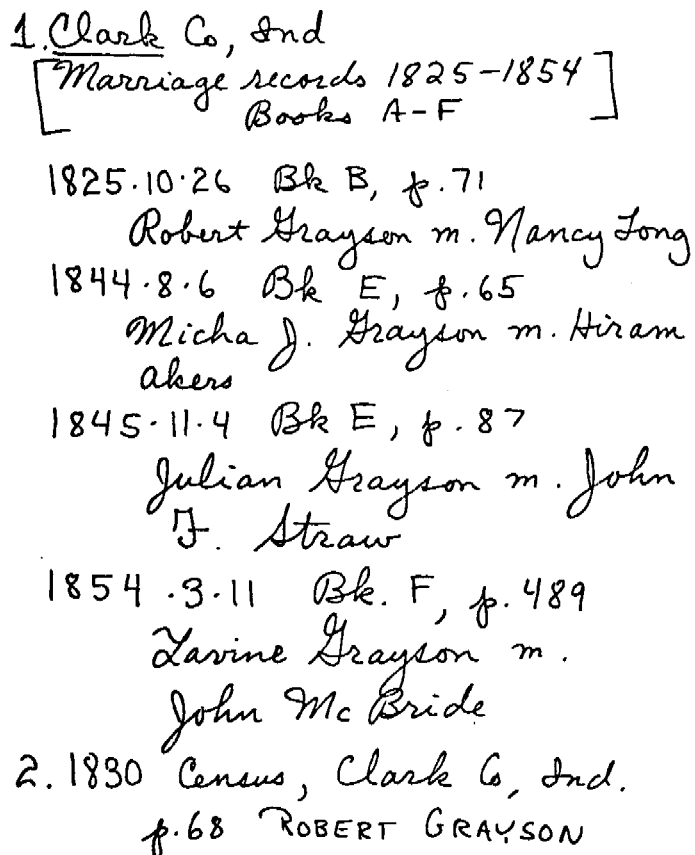 1. Clark Co, Ind
[Marriage records 1825-1854
Books A-F]
1825.10.26 Bk B, p.71
Robert Grayson m. Nancy Long
1844.8.6 Bk E, p.65
Micha J. Grayson m. Hiram
Akers
1845.11.4 Bk E, p.87
Julian Grayson m. John
F. Straw
1854.3.11 Bk. F, p.489
Lavine Grayson m.
John McBride
2. 1830 Census, Clark Co, Ind.
p.68 ROBERT GRAYSON